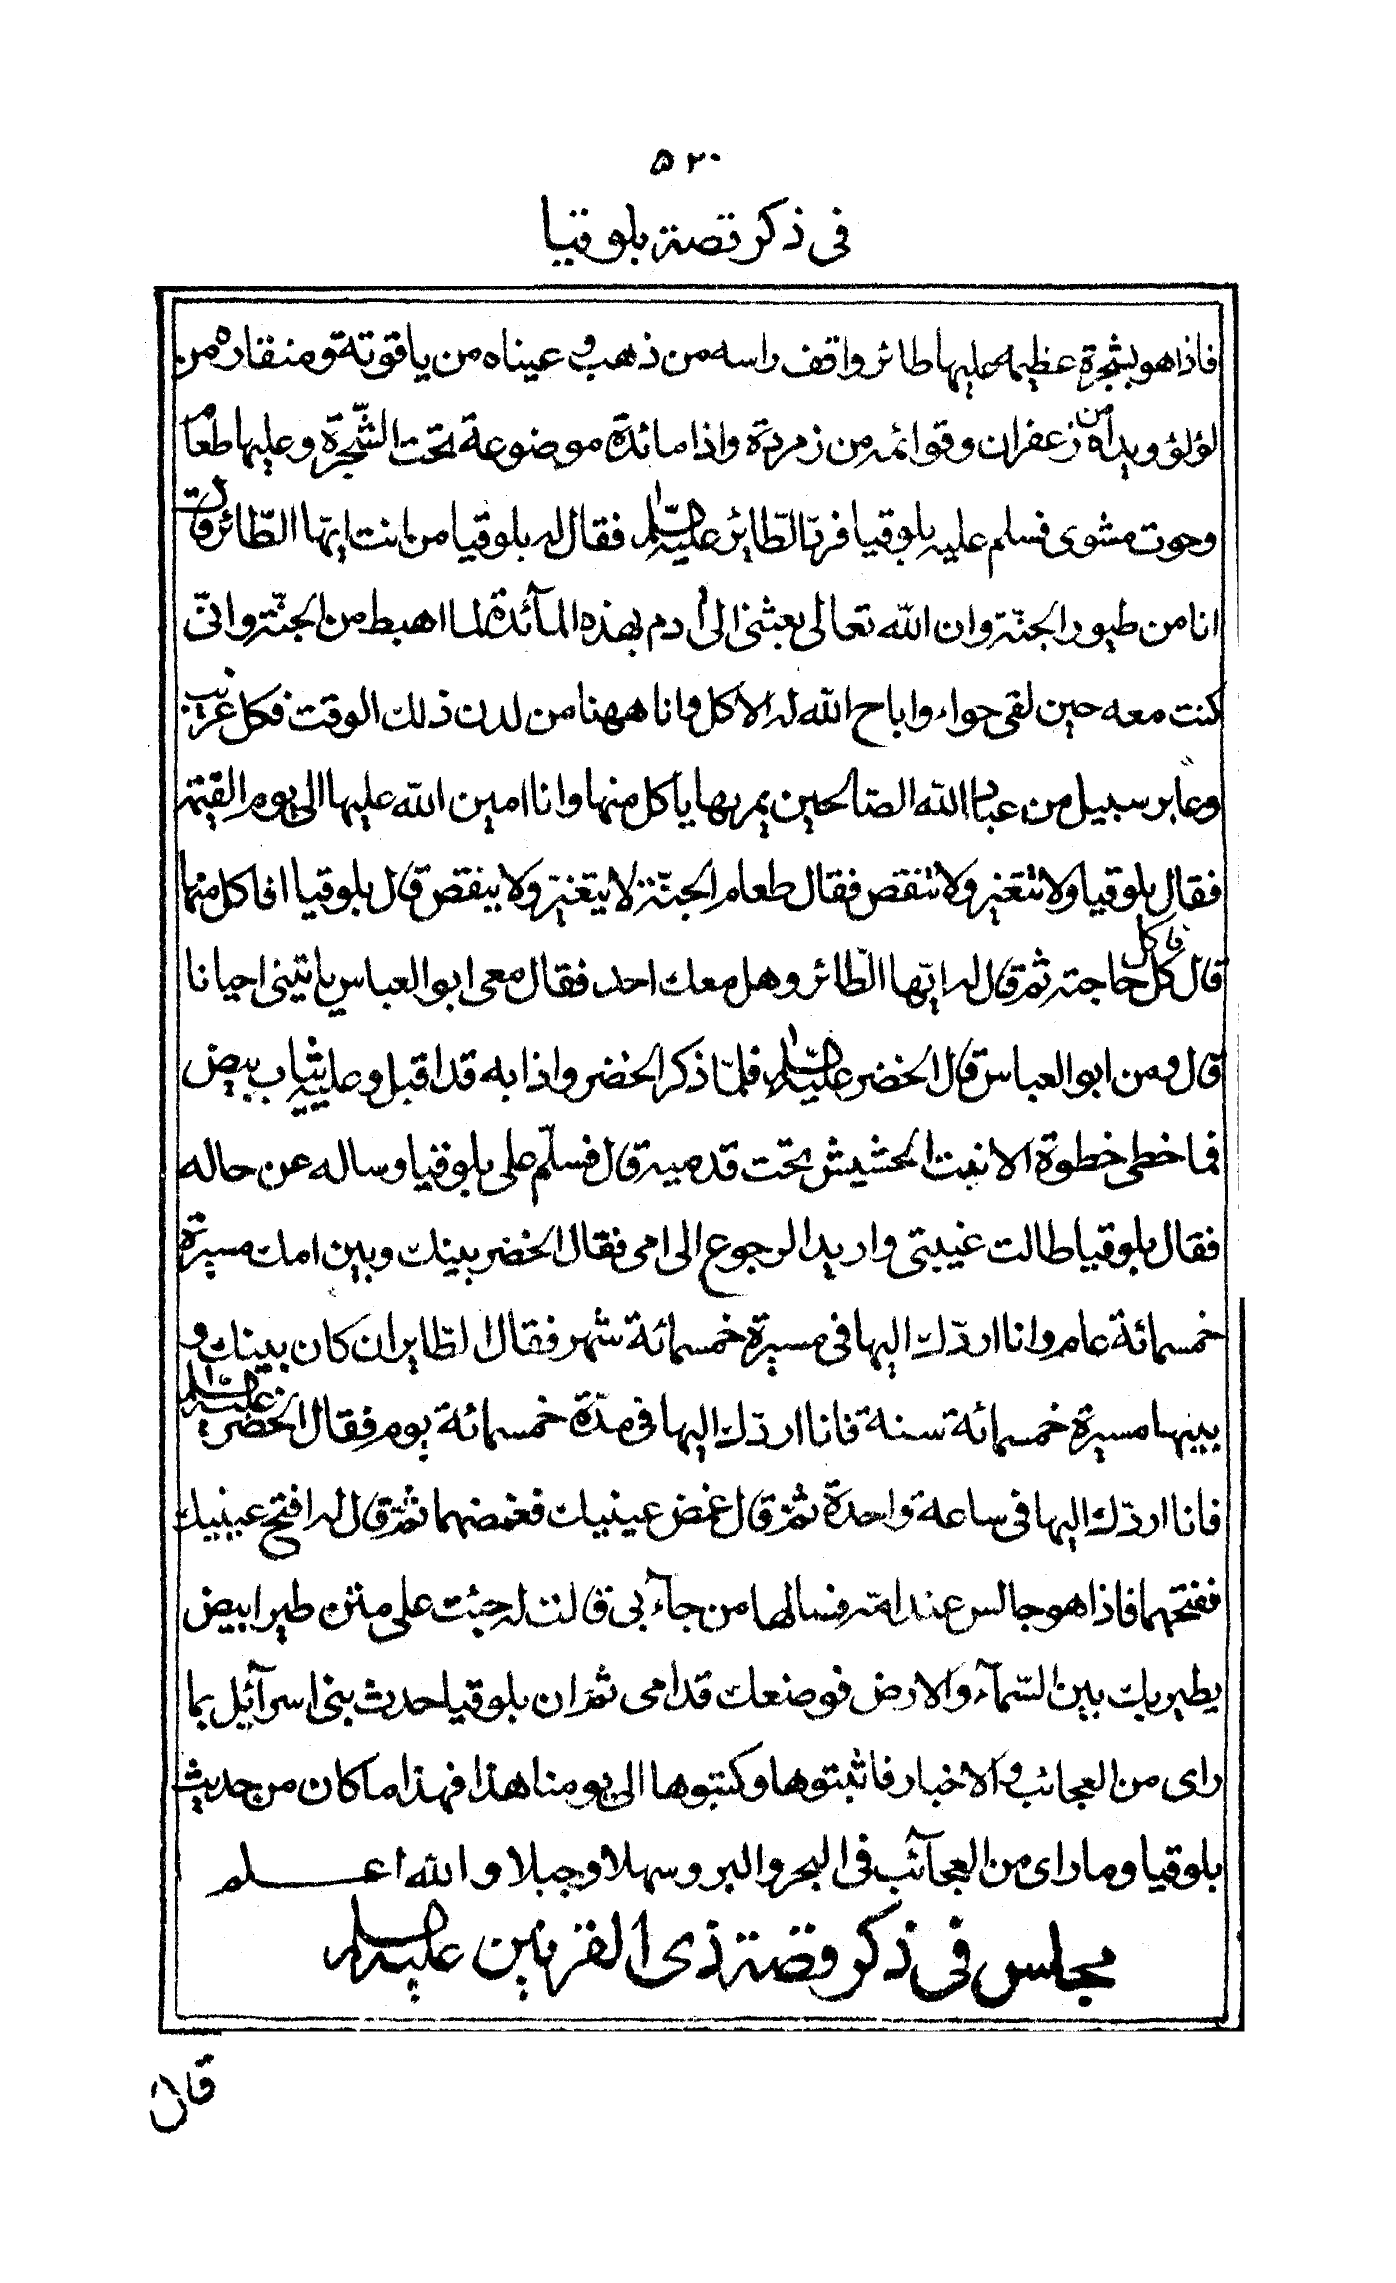 ٥٢٠
في ذكر قصة بلوقيا
فاذا هو بشجرة عظيمه عليها طائر واقف راسه من ذهب و عيناه من ياقوتة ومنقاره من
لؤلؤ ويداه من زعفران وقوائمه من زمردة واذا مائدة موضوعة تحت الشّجرة وعليها طعام
وحوت مشوى فسلم عليه بلوقيا فردّ الطّائر عليه السّلام فقال له بلوقيا من انت ايّها الطّائر قال
انا من طيور الجنّة وان اللّه تعالى بعثنى الى آدم بهذه المآئدة لما اهبط من الجنّة وانّى
كنت معه حين لقى حواء واباح اللّه له الاكل وانا ههنا من لدن ذلك الوقت فكل غريب
وعابر سبيل من عباد اللّه الصّالحين يمر بها ياكل منها وانا امين اللّه عليها الى يوم القيمة
فقال بلوقيا ولا تتغير ولا تنقص فقال طعام الجنّة لا يتغير ولا ينقص قال بلوقيا افاكل منها
قال كل فاكل حاجته ثم قال له ايّها الطّائر وهل معك احد فقال معى ابو العباس ياتينى احيانا
قال ومن ابو العباس قال الخضر عليه السّلام فلمّا ذكر الخضر واذا به قد اقبل وعليه ثياب بيض
فما خطى خطوة الا نبت الحشيش تحت قدميه قال فسلّم على بلوقيا وساله عن حاله
فقال بلوقيا طالت غيبتى واريد الرجوع الى امى فقال الخضر بينك وبين امك مسيرة
خمسمائة عام وانا اردّك اليها فى مسيرة خمسمائة شهر فقال الطاير ان كان بينك و
بينها مسيرة خمسمائة سنة فانا اردّك اليها فى مدّة خمسمائة يوم فقال الخضر عليه السّلام
فانا اردّك اليها فى ساعة واحدة ثم قال غمض عينيك فغمضهما ثم قال له افتح عينيك
ففتحهما فاذا هو جالس عند امّه فسالها من جآء بى قالت له جئت على متن طير ابيض
يطير بك بين السّمآء والارض فوضعك قدامى ثم ان بلوقيا حدث بنى اسرآئيل بما
راى من العجائب والاخبار فاثبتوها وكتبوها الى يومنا هذا فهذا ما كان من حديث
بلوقيا وما راى من العجآئب فى البحر والبر وسهلا وجبلا و اللّه اعلم
مجلس في ذكر قصة ذى القرنين عليه السلام
قال